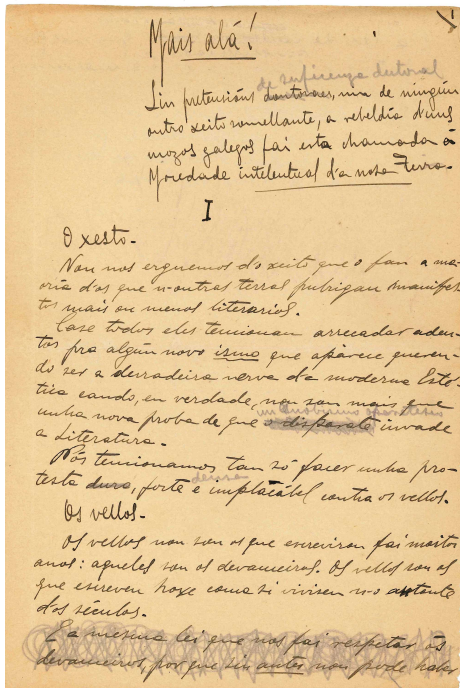 Mais alá!
de suficenza doctoral
Sin pretensións doutoraes, nin de ningún
outro xeito somellante, a rebeldía d'uns
mozos galegos fai esta chamada á
Mocedade intelentual d'a nosa Terra.
I
O xesto.
Non nos erguemos d'o xeito que o fan a ma-
oría d'os que n-outras terras pubrigan manifes-
tos mais ou menos literarios.
Case todos eles tencionan arrecadar aden-
tos pra algún novo ismo que aparece queren-
do ser a derradeira nerva d'a moderna Esté-
tica cando, en verdade, non son mais que
unha nova proba de que o disparate invade
a Literatura.
Nós tencionamos tan só facer unha pro-
testa dura, forte e implacábel contra os vellos.
Os vellos.
Os vellos non son os que escreviron fai moitos
anos: aqueles son os devanceiros. Os vellos son os
que escreven hoxe como si vivisen n-o antonte
dos séculos.
E a mesma lei que nos fai respetar ós
devanceiros, por que sin antes non pode haber